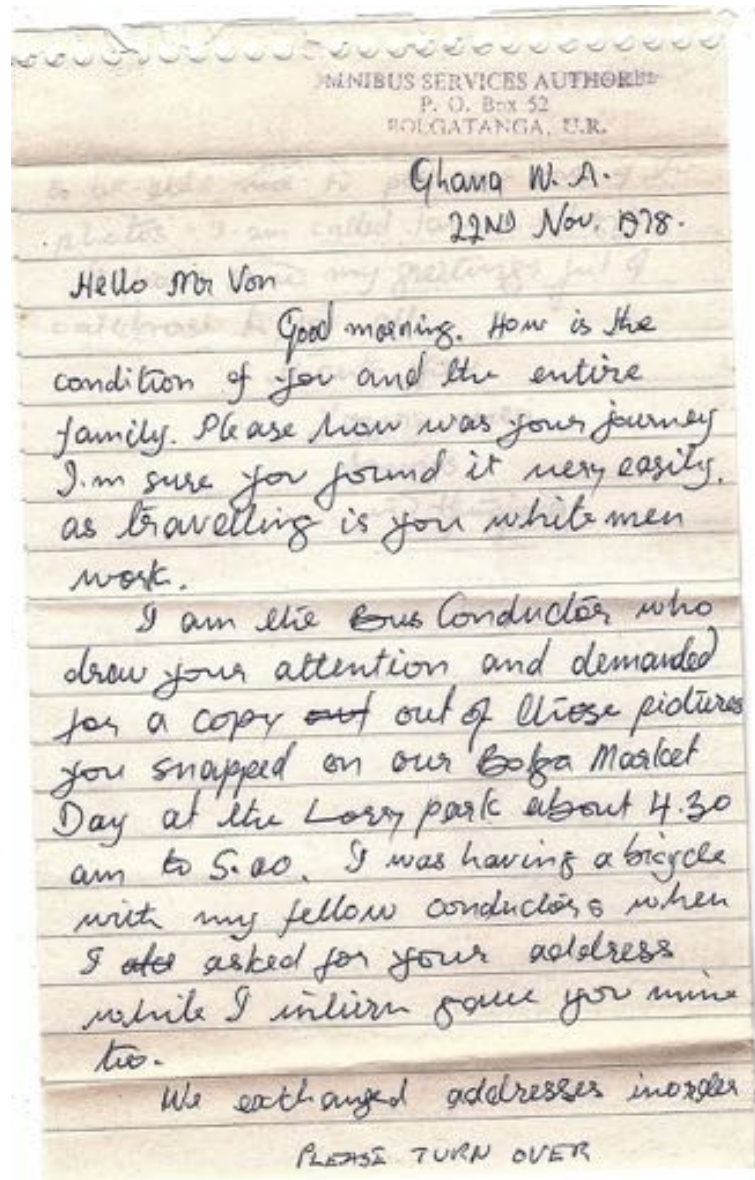 OMNIBUS SERVICES AUTHORITY
P. O. Box 52
BOLGATANGA, U.R.
Ghana W. A.
22ND Nov. 1978.
Hello Mr Von
Good morning. How is the
condition of you and the entire
family. Please how was your journey
I.m sure you found it very easily.
as travelling is you white men
work.
I am the Bus Conductor who
draw your attention and demanded
for a copy out out of those pictures
you snapped on our Bolga Market
Day at the Lorry park about 4.30
am to 5.00. I was having a bicycle
with my fellow conductors when
I asked for your address
while I inturn gave you mine
too.
We exchanged addresses inorder
PLEASE TURN OVER